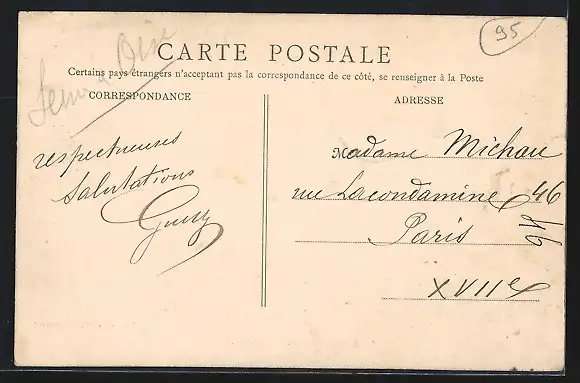 95
Seine & Oise
CARTE POSTALE
Certains pays étrangers n'acceptant pas la correspondance de ce côté, se renseigner à la Poste
CORRESPONDANCE
respectueuses
Salutations
ADRESSE
Madame Michau
rue Lacondamine 46
46
Paris
XVIIe